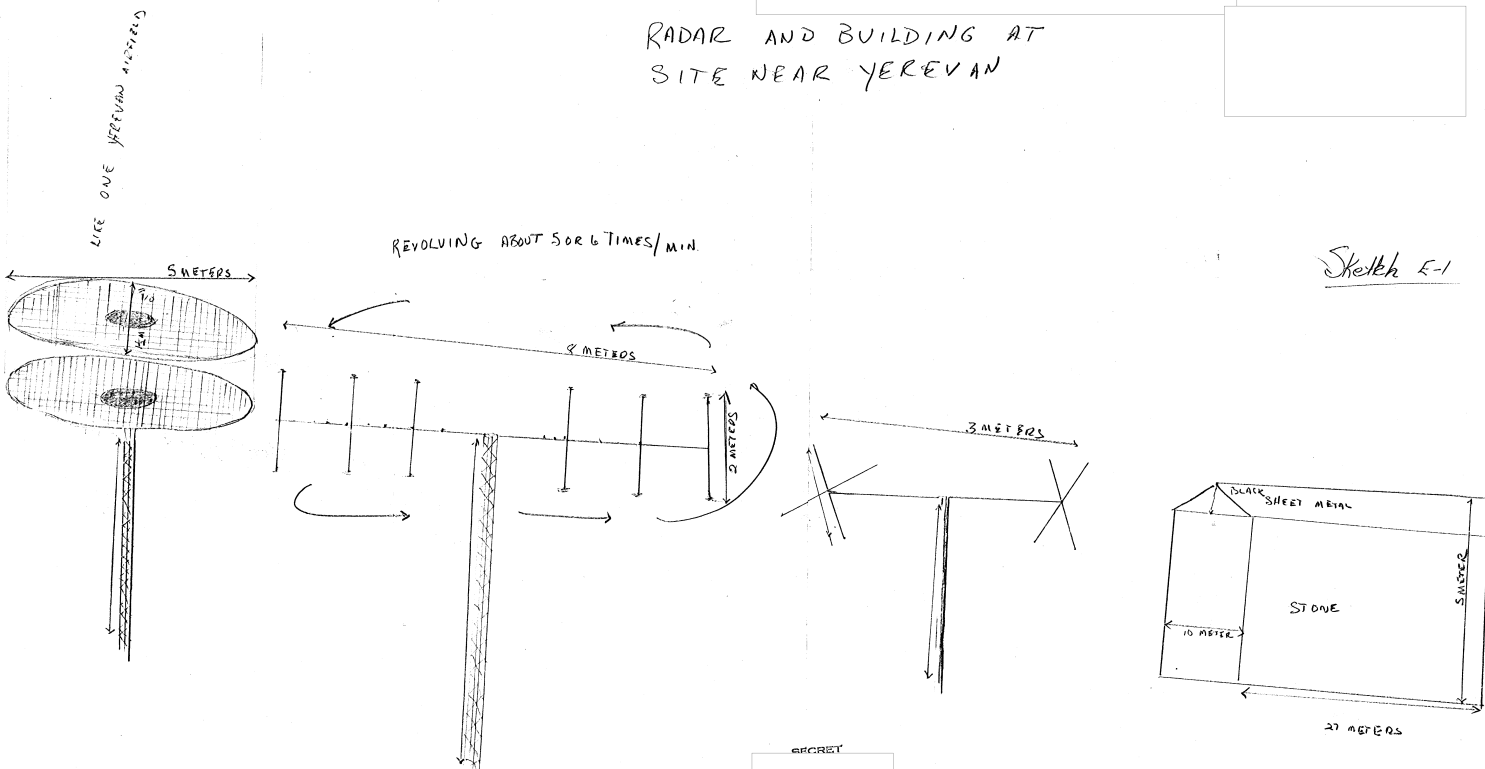 RADAR AND BUILDING AT
SITE NEAR YEREVAN
LIKE ONE YEREVAN AIRFIELD
REVOLVING ABOUT 5 OR 6 TIMES/MIN.
Sketch E-1
5 METERS
8 METERS
2 METERS
3 METERS
BLACK SHEET METAL
5 METER
STONE
10 METER
27 METERS
SECRET